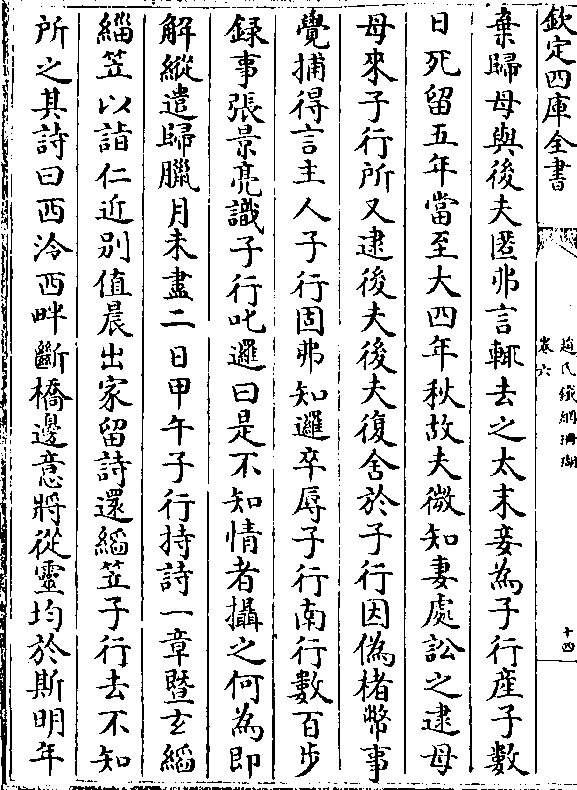 欽定四庫全書
趙氏鐵網珊瑚
卷六
十四
棄歸母與後夫匿弗言輒去之太末妾為子行產子數
日死留五年當至大四年秋故夫微知妻處訟之逮母
母來子行所又逮後夫後夫復舍於子行因偽楮幣事
覺捕得言主人子行固弗知邏卒辱子行南行數百步
録事張景亮識子行叱邏曰是不知情者攝之何為即
解縱遣歸臘月未盡二日甲午子行持詩一章暨玄縚
緇笠以詣仁近別值晨出家留詩還縚笠子行去不知
所之其詩曰西泠西畔斷橋邊意將從靈均於斯明年